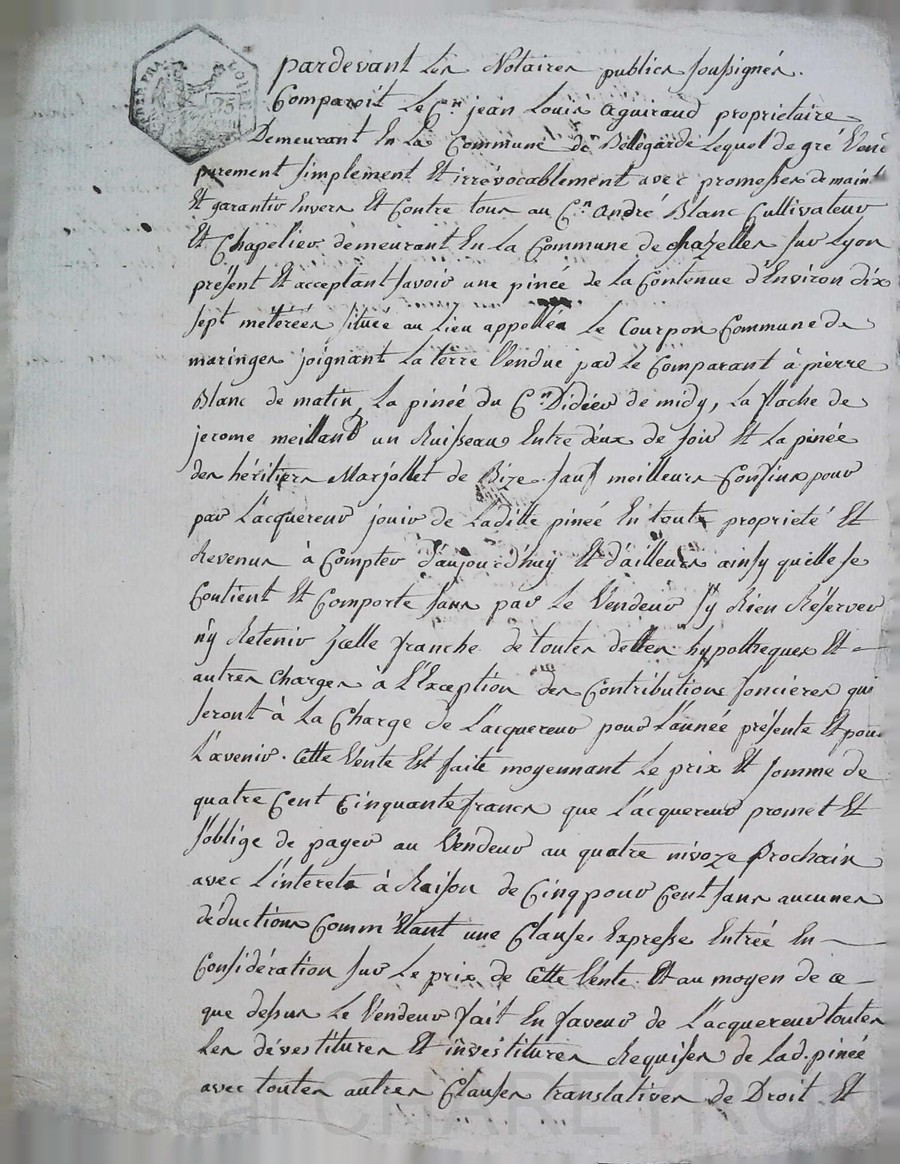 pardevant Les Notaires publics soussignés.
Comparoit Le Cn. jean Louis aguiraud propriétaire
Demeurant En La Commune de Bélégarde Lequel de gré Vend
purement simplement Et irrévocablement avec promesses de maint
Et garantir Envers Et Contre tous au Cn. andré Blanc Cultivateur
Et Chapelier demeurant En La Commune de chazelles sur Lyon
présent Et acceptant savoir une pinée de La Contenue d'Environ dix
sept métérées située au Lieu appellée Le Courpon Commune de
maringes joignant La terre Vendue par Le Comparant à pierre
Blanc de matin, La pinée du Cn. Didier de midy, La flache de
jerome meilland un Ruisseau Entre deux de soir Et La pinée
des héritiers Marjollet de Bize. sauf meilleurs Confins pour
par L'acquereur jouir de Ladite pinée En toute propriété Et
Revenus à Compter d'aujourd'huy Et d'ailleurs ainsy quelle se
Contient Et Comporte sans par Le Vendeur s'y Rien Réserver
n'y Retenir Jcelle franche de toutes dettes hypotheques Et
autres Charges à L'Exception des Contributions foncières qui
seront à La Charge de L'acquereur pour L'année présente Et pour
L'avenir. Cette Vente Est faite moyennant Le prix Et somme de
quatre Cent Cinquante francs que L'acquereur promet Et
s'oblige de payer au Vendeur au quatre nivoze prochain
avec L'interets à Raison de Cinq pour Cent sans aucunes
déductions Comm'Etant une Clause Expresse Entrée En
Considération sur Le prix de Cette Vente. Et au moyen de ce
que dessus Le Vendeur fait En faveur de L'acquereur toutes
Les dévestitures Et investitures Requises de Lad. pinée
avec toutes autres Clauses translatives de Droit Et
CHAREYRON